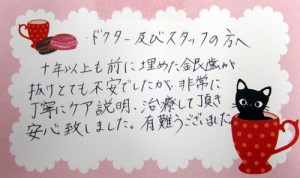 ドクター及びスタッフの方へ
十年以上も前に埋めた金銀歯が
抜けとても不安でしたが、非常に
丁寧にケア説明、治療して頂き
安心致しました。有難うございました